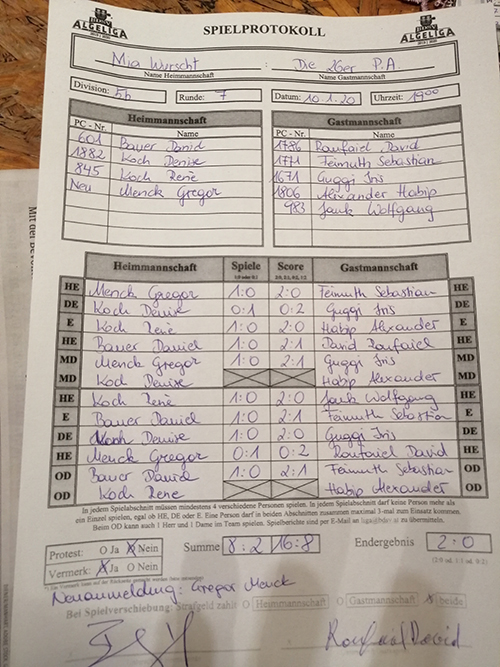 ALGELIGA
SPIELPROTOKOLL
ALGELIGA
Mia Wurscht : Die 26er P.A.
Name Heimmannschaft Name Gastmannschaft
Division: 5b Runde: 7 Datum: 10.1.20 Uhrzeit: 19⁰⁰
Heimmannschaft Gastmannschaft
PC - Nr. Name PC - Nr. Name
601 Bauer David 1786 Roufaiel David
1882 Koch Denise 1771 Feimuth Sebastian
845 Koch Rene 1671 Guggi Iris
Neu Menck Gregor 1806 Alexander Habip
983 Jauk Wolfgang
Heimmannschaft Spiele Score Gastmannschaft
HE Menck Gregor 1:0 2:0 Feimuth Sebastian HE
DE Koch Denise 0:1 0:2 Guggi Iris DE
E Koch Rene 1:0 2:0 Habip Alexander E
HE Bauer Daniel 1:0 2:1 David Roufaiel HE
MD Menck Gregor 1:0 2:1 Guggi Iris MD
MD Koch Denise Habip Alexander MD
HE Koch Rene 1:0 2:0 Jauk Wolfgang HE
E Bauer Daniel 1:0 2:1 Feimuth Sebastian E
DE Koch Denise 1:0 2:0 Guggi Iris DE
HE Menck Gregor 0:1 0:2 Roufaiel David HE
OD Bauer David 1:0 2:1 Feimuth Sebastian OD
OD Koch Rene Habip Alexander OD
In jedem Spielabschnitt müssen mindestens 4 verschiedene Personen spielen. In jedem Spielabschnitt darf keine Person mehr als
ein Einzel spielen, egal ob HE, DE oder E. Eine Person darf in beiden Abschnitten zusammen maximal 3-mal zum Einsatz kommen.
Beim OD kann auch 1 Herr und 1 Dame im Team spielen. Spielberichte sind per E-Mail an zu übermitteln.
Protest: O Ja O Nein Summe 8:2 16:8 Endergebnis 2:0
Vermerk: O Ja O Nein
Neuanmeldung: Gregor Menck
Bei Spielverschiebung: Strafgeld zahlt O Heimmannschaft O Gastmannschaft O beide
Roufaiel David